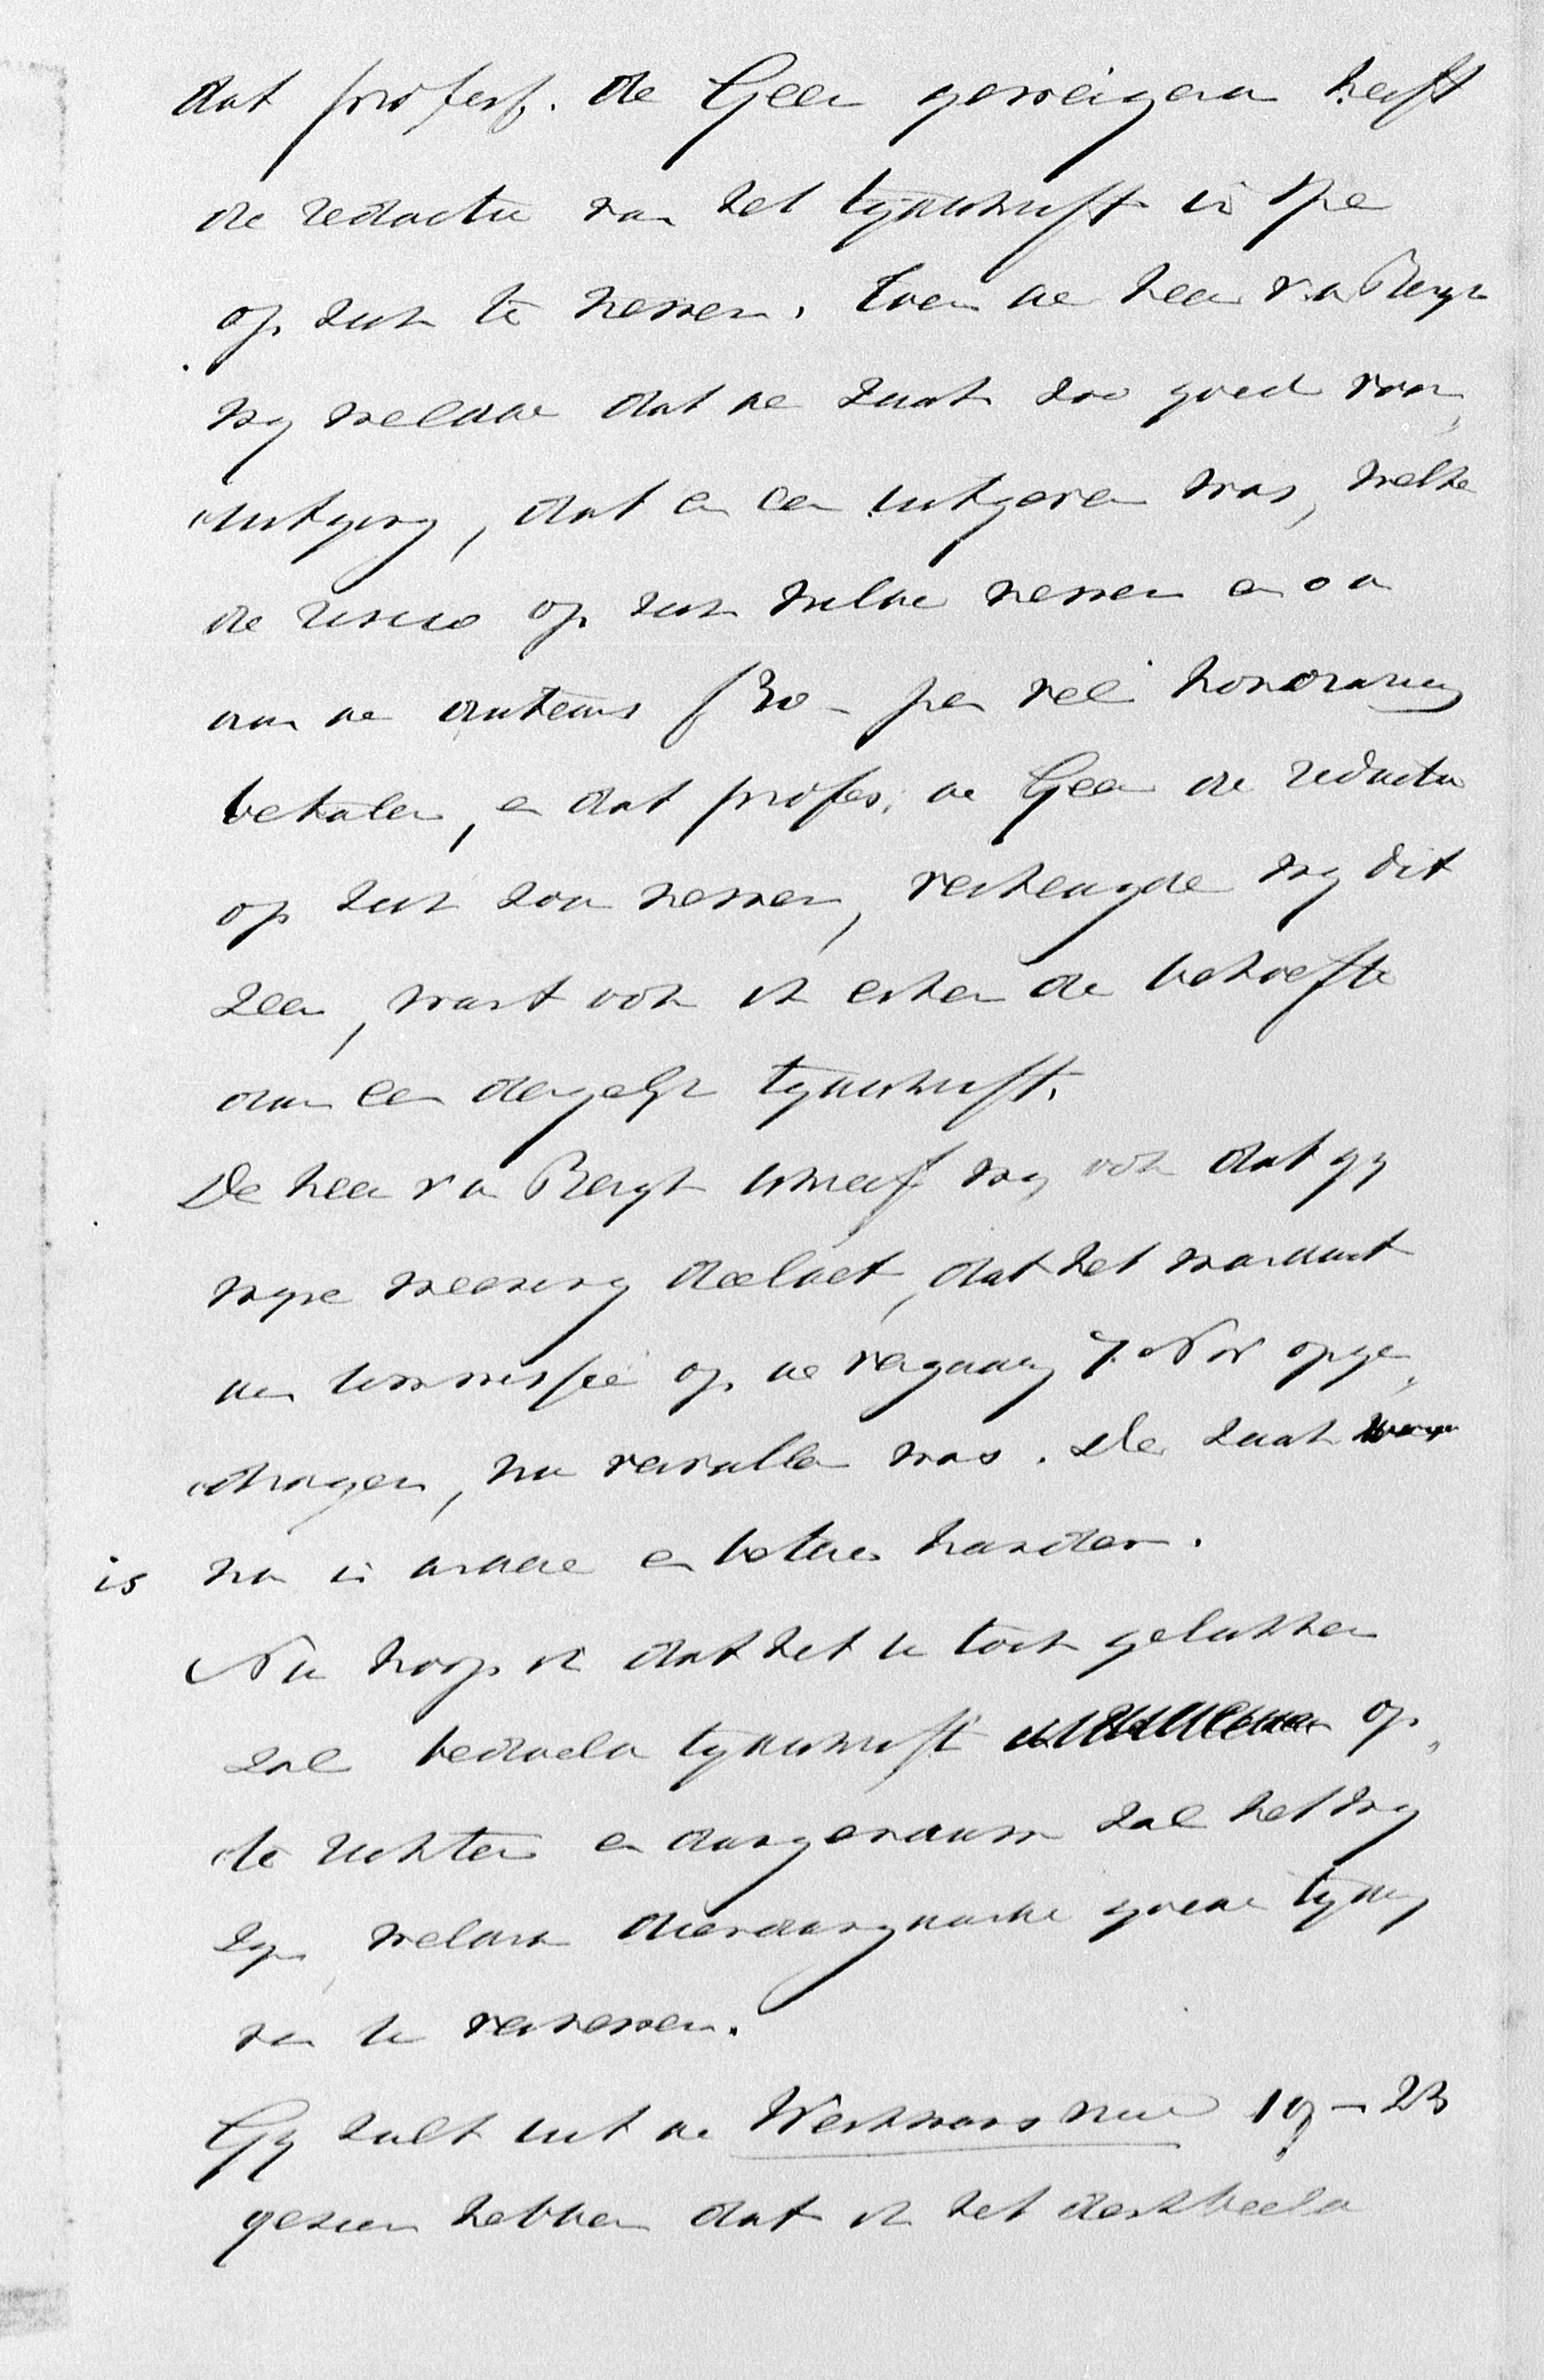 dat profess. de Geer geweigerd heeft
de redactie van het tijdschrift in spe
op zich te nemen. Toen de heer van Bergh
mij meldde dat de zaak zoo goed voor„
„uitging, dat er een uitgever was, welke
de risico op zich wilde nemen en
aan de auteurs f 30 - per vel honorarium
betalen, en dat profes. de Geer de redactie
op zich zou nemen, verheugde mij dit
zeer, want ook ik erken de behoefte
aan een dergelijk tijdschrift.
De heer van Bergh schreef mij ook dat gij
mijne meening deeldet, dat het mandaat
der commissie op de vergadering 7 Nov opge„
„dragen, nu vervallen was. De zaak
is nu in andere en betere handen.
Nu hoop ik dat het u toch gelukken
zal bedoeld tijdschrift op„
„te richten en aangenaam zal het mij
zijn, weldra dienaangaande goede tijding
van u te vernemen.
Gij zult uit de Werkman 19 - 23
gezien hebben dat ik het denkbeeld